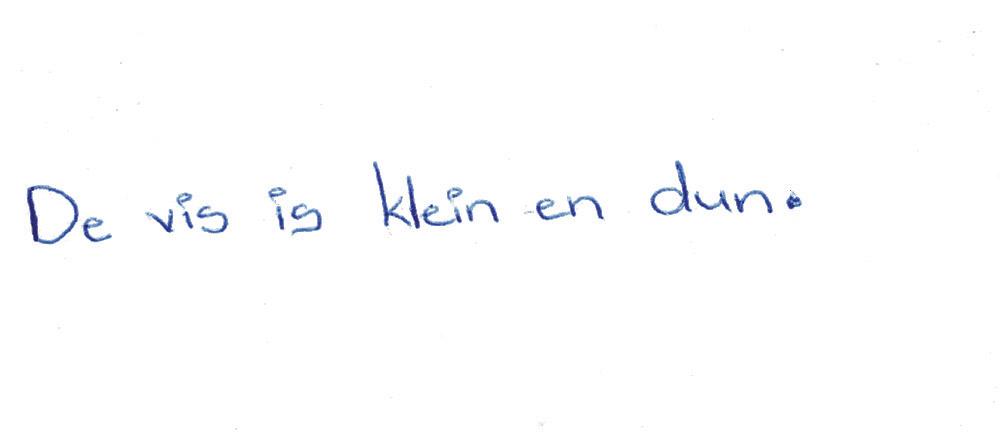 De vis is klein en dun.